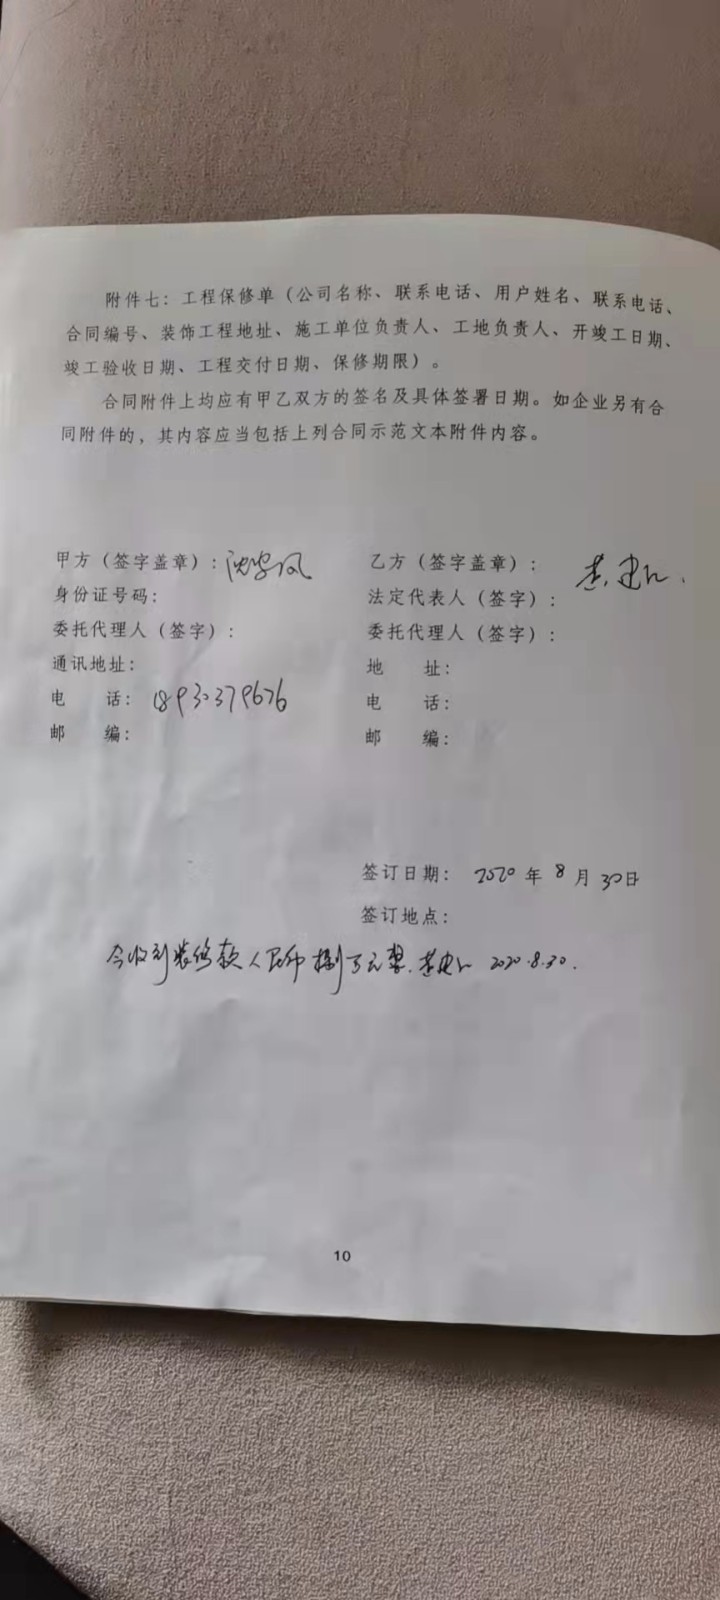 附件七：工程保修单（公司名称、联系电话、用户姓名、联系电话、
合同编号、装饰工程地址、施工单位负责人、工地负责人、开竣工日期、
竣工验收日期、工程交付日期、保修期限）。
合同附件上均应有甲乙双方的签名及具体签署日期。如企业另有合
同附件的，其内容应当包括上列合同示范文本附件内容。
甲方（签字盖章）：
乙方（签字盖章）：
身份证号码：
法定代表人（签字）：
委托代理人（签字）：
委托代理人（签字）：
通讯地址：
地 址：
电 话：18930379676
电 话：
邮 编：
邮 编：
签订日期：2020年8月30日
签订地点：
今收到装修款人民币捌万元整. 2020.8.30.
10